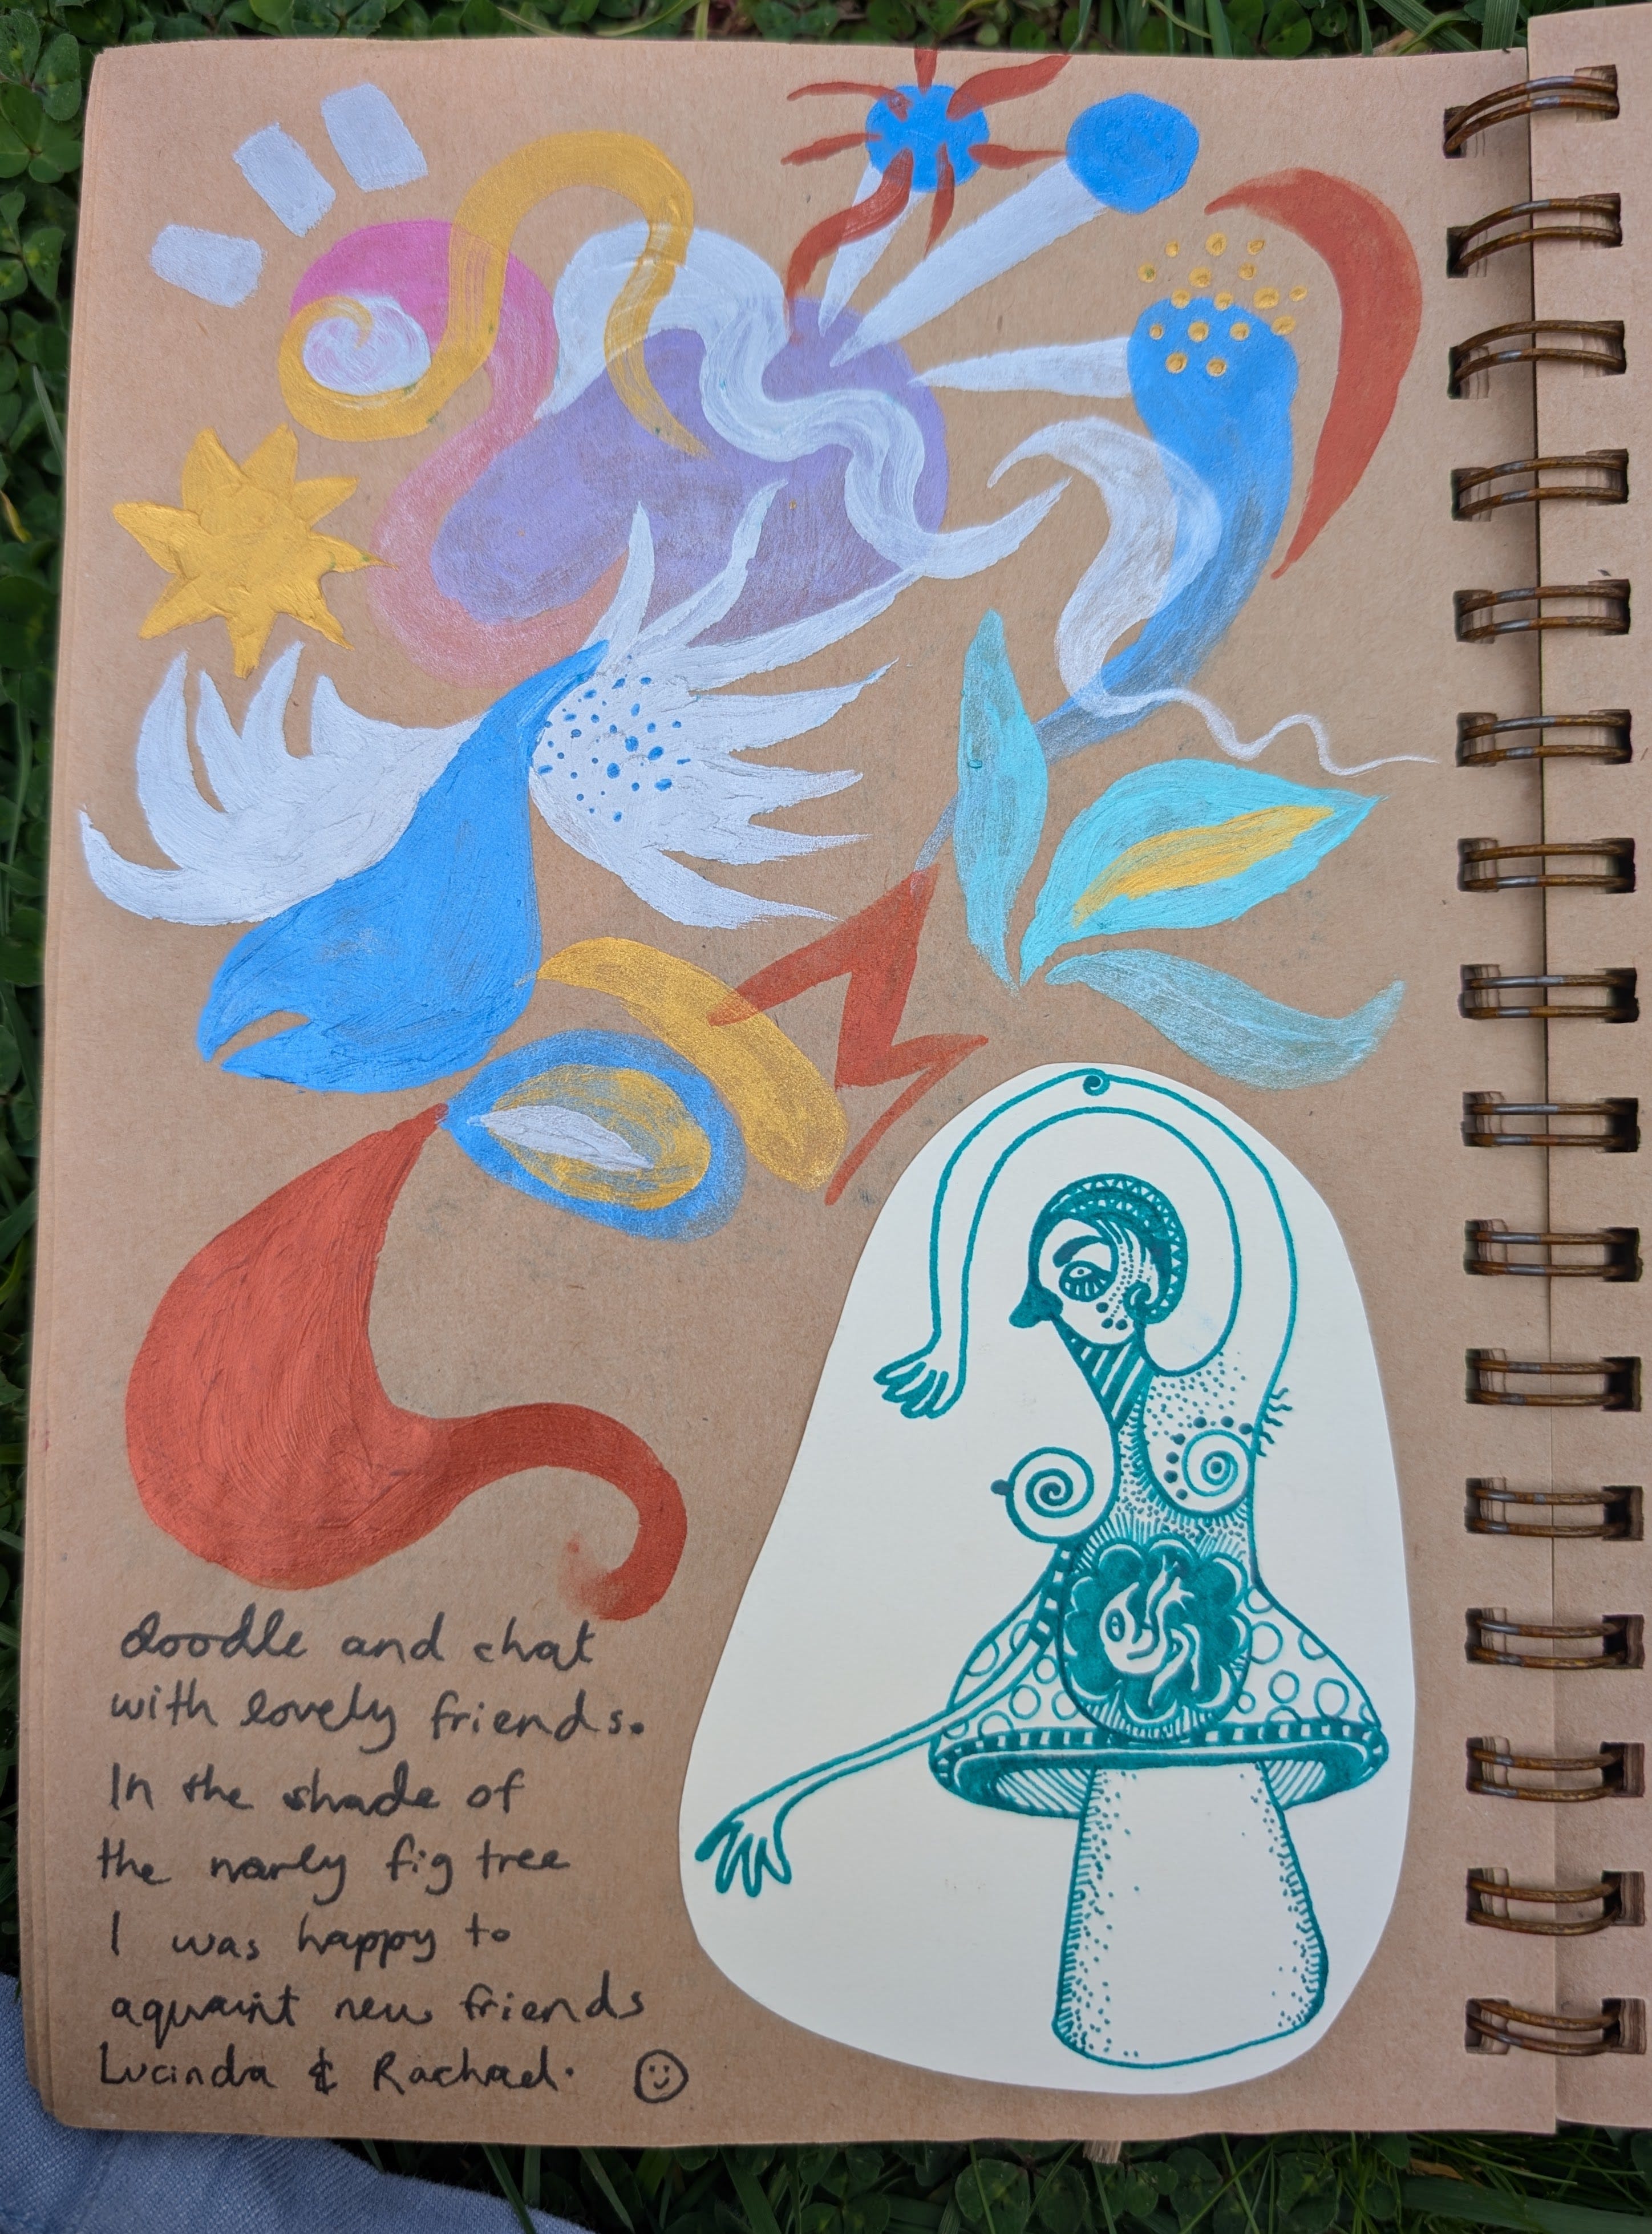 doodle and chat
with lovely friends.
In the shade of
the narly fig tree
I was happy to
aquaint new friends
Lucinda & Rachael.